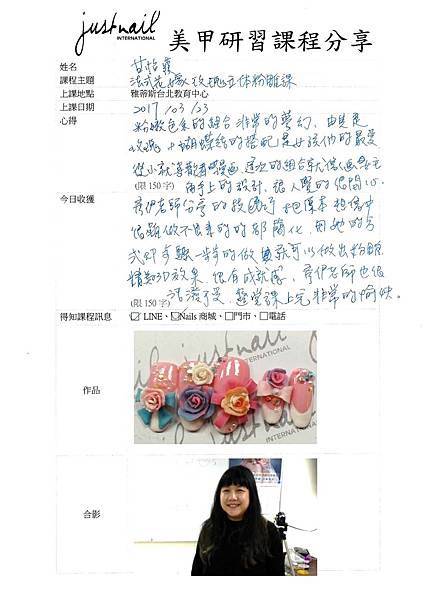 justnail
INTERNATIONAL
美甲研習課程分享
姓名 甘怡
課程主題 法式花嫁玫瑰立体粉雕課
上課地點 雅蒂斯台北教育中心
上課日期 2017/03/23
心得 粉嫩色系的組合非常的夢幻，尤其是
玫瑰+蝴蝶結的搭配是女孩他的最愛
從小就 這次的組合
(限 150 字) 手上的設計，很 的 心
今日收獲 老師分享的技巧 把原本想像中
很難做不出來的的都簡化，用她的方
式 步驟一步步的做 就可以做出粉雕
精緻3D效果，很有成就感， 老師也很
(限 150 字) 活潑可愛，整堂課上完非常的愉快。
得知課程訊息 ☑ LINE、☑Nails 商城、☐門市、☐電話
作品
justnail
INTERNATIONAL
合影